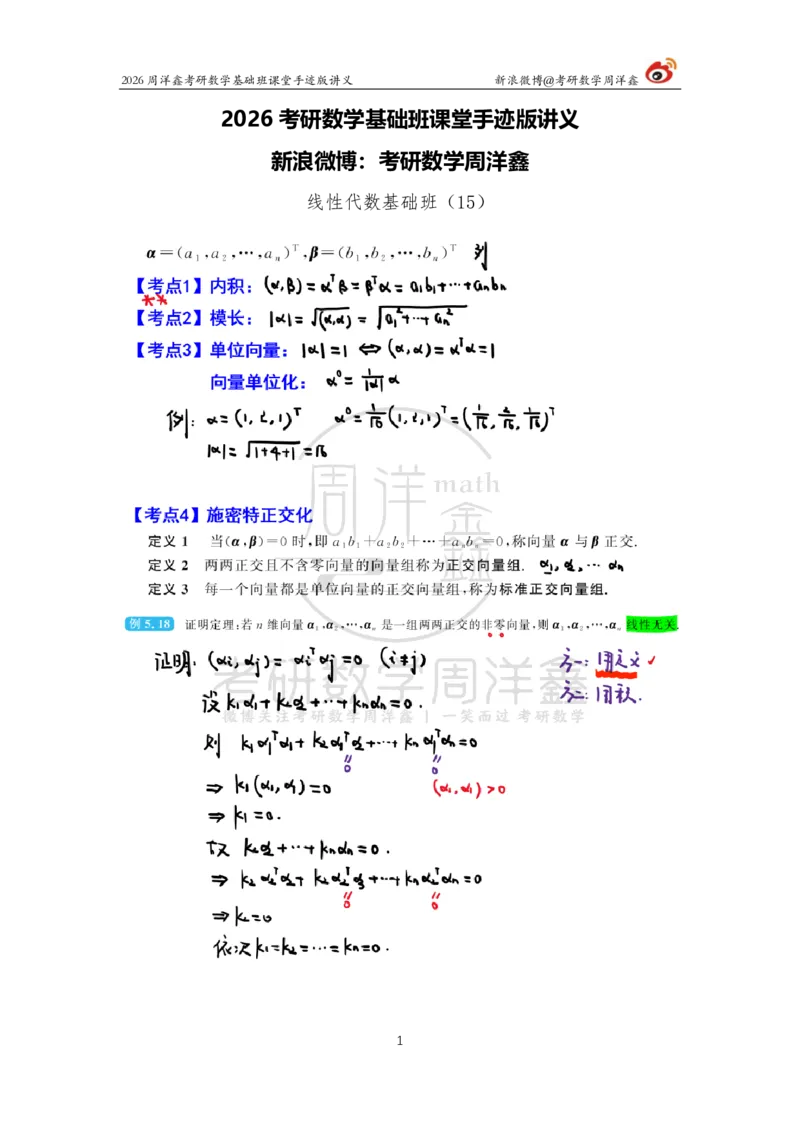 2026 周洋鑫考研数学基础班课堂手迹版讲义 新浪微博@考研数学周洋鑫
2026 考研数学基础班课堂手迹版讲义
新浪微博：考研数学周洋鑫
线性代数基础班（15）
α=(a₁,a₂,⋯,aₙ)ᵀ,β=(b₁,b₂,⋯,bₙ)ᵀ 列
【考点1】内积：(α,β)=αᵀβ=βᵀα=a₁b₁+⋯+aₙbₙ
【考点2】模长：|α|=√(α,α)=√(a₁²+⋯+aₙ²)
【考点3】单位向量：|α|=1 ⇔ (α,α)=αᵀα=1
向量单位化：α⁰=1/|α| α
例：α=(1,2,1)ᵀ α⁰=1/√6(1,2,1)ᵀ=(1/√6,2/√6,1/√6)ᵀ
|α|=√(1+4+1)=√6
周洋鑫math
【考点4】施密特正交化
定义 1 当(α,β)=0 时,即 a₁b₁+a₂b₂+⋯+aₙbₙ=0,称向量 α 与 β 正交.
定义 2 两两正交且不含零向量的向量组称为正交向量组. α₁,α₂,⋯αₙ
定义 3 每一个向量都是单位向量的正交向量组,称为标准正交向量组.
例 5.18 证明定理:若 n 维向量 α₁,α₂,⋯,αₙ 是一组两两正交的非零向量,则 α₁,α₂,⋯,αₙ 线性无关.
证明：(αi,αj)=αiᵀαj=0 (i≠j) 方一：用定义✓
考研数学周洋鑫
设 k₁α₁+k₂α₂+⋯+kₙαₙ=0. 方二：用秩.
微博关注考研数学周洋鑫 | 一笑而过 考研数学
则 k₁α₁ᵀα₁+k₂α₁ᵀα₂+⋯+kₙα₁ᵀαₙ=0
0 0
⇒ k₁(α₁,α₁)=0 (α₁,α₁)>0
⇒ k₁=0.
故 k₂α₂+⋯+kₙαₙ=0.
⇒ k₂α₂ᵀα₂+k₃α₂ᵀα₃+⋯+kₙα₂ᵀαₙ=0
0 0
⇒ k₂=0
依次 k₁=k₂=⋯=kₙ=0.
1